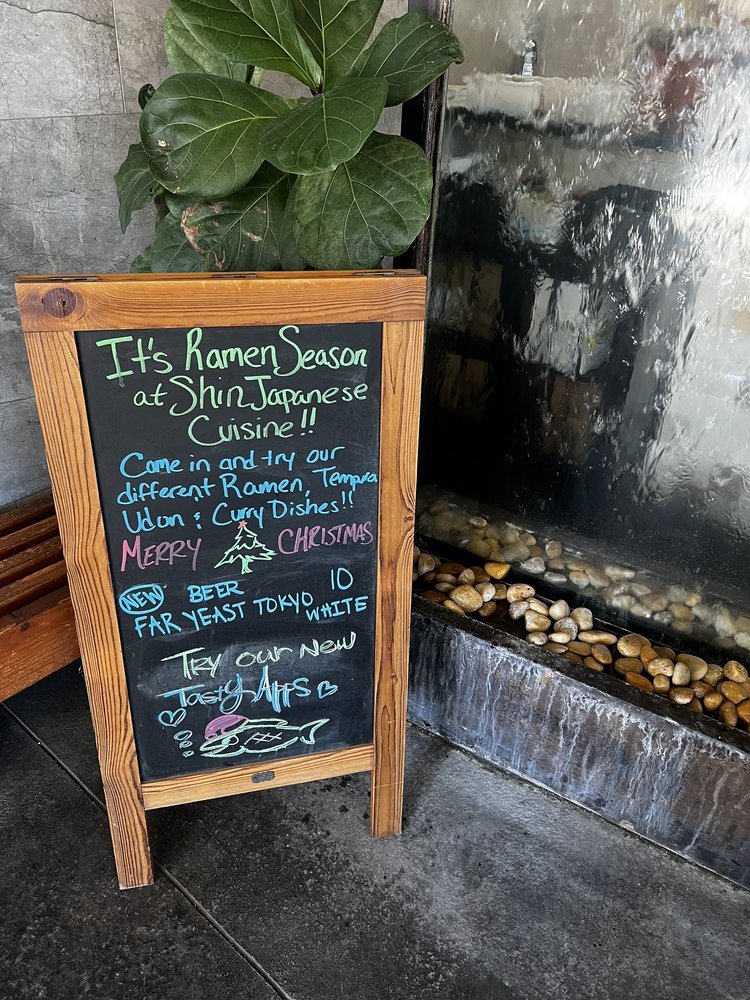 It's Ramen Season
at Shin Japanese
Cuisine!!
Come in and try our
different Ramen, Tempura
Udon & Curry Dishes!!
MERRY CHRISTMAS
NEW BEER 10
FAR YEAST TOKYO WHITE
TRY our NEW
Tasty Apps